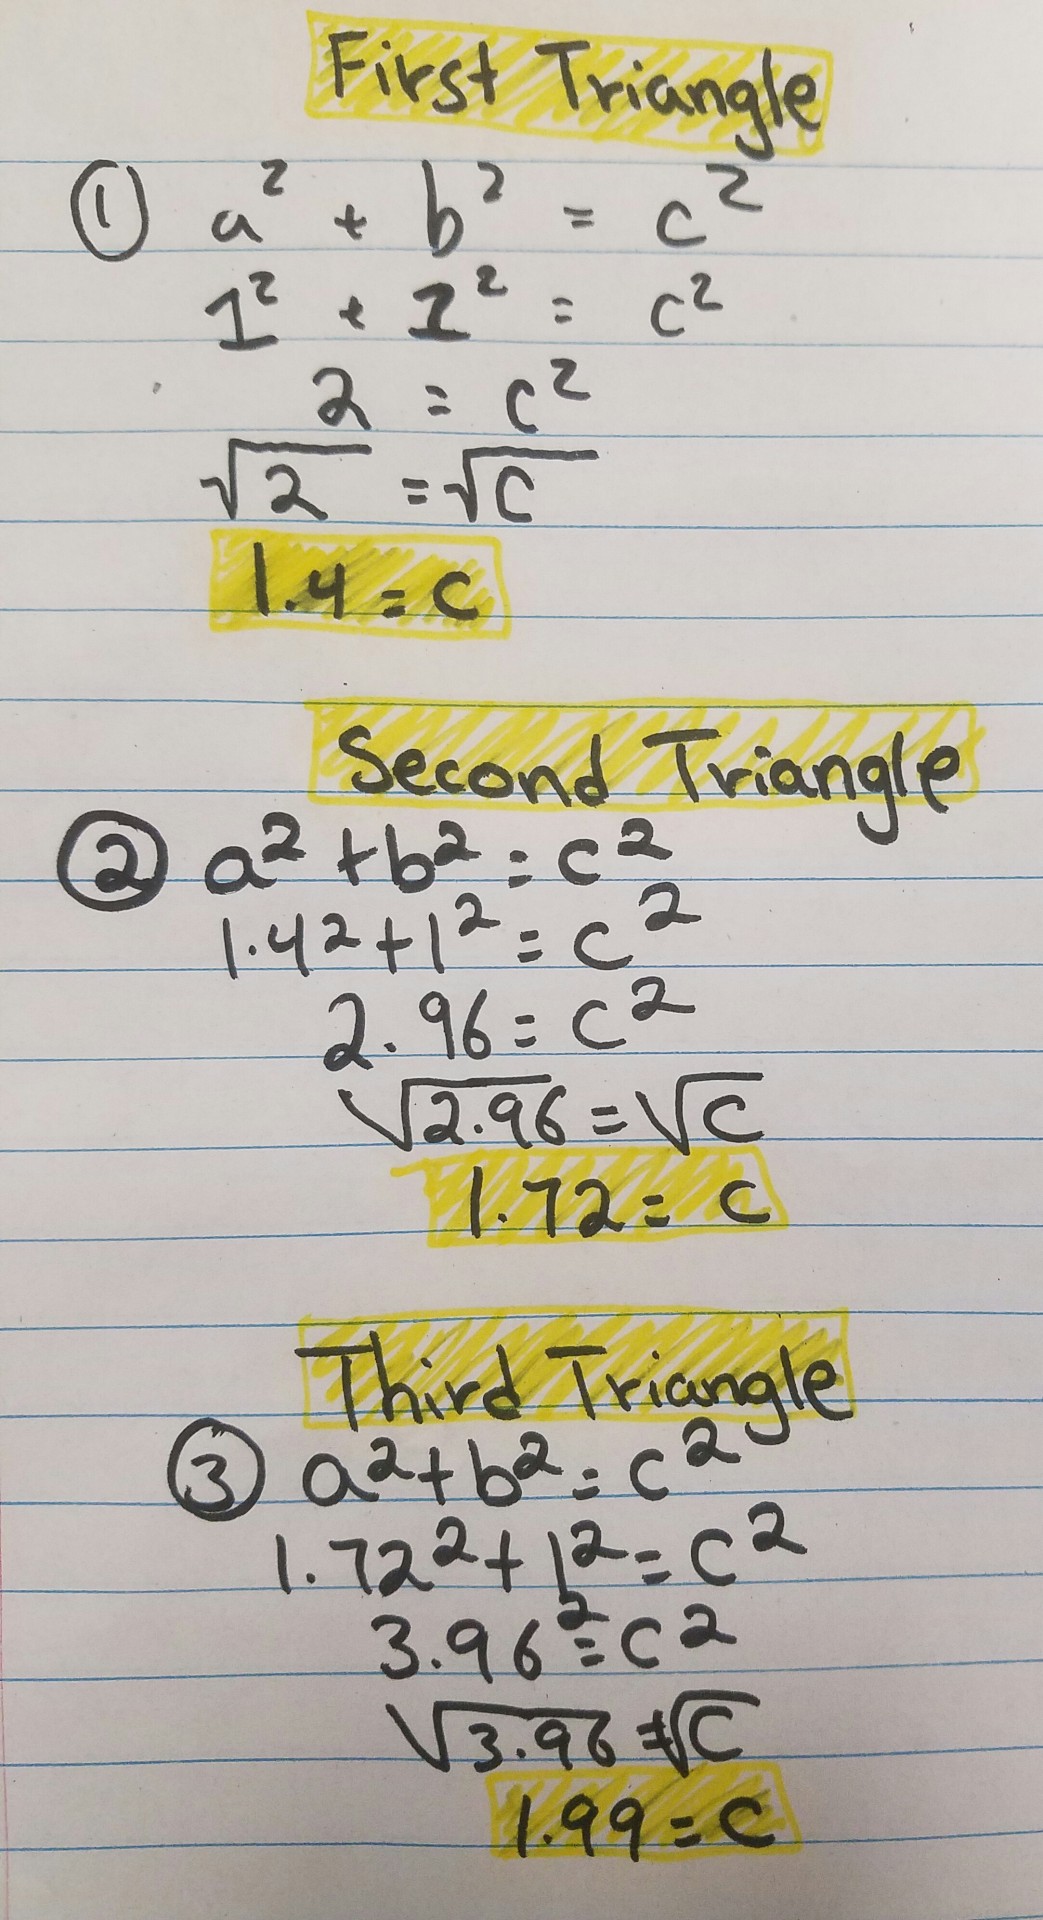 First Triangle
① a² + b² = c²
1² + 1² = c²
2 = c²
√2 = √c
1.4 = c
Second Triangle
② a² + b² = c²
1.42 + 1² = c²
2.96 = c²
√2.96 = √c
1.72 = c
Third Triangle
③ a² + b² = c²
1.72² + 1² = c²
3.96² = c²
√3.96 = √c
1.99 = c